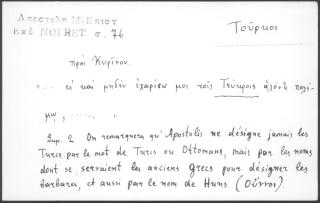 Αποστολη Μ. Επιστ
Εκδ NOIRET σ. 76
Τοῦρκοι
πρὸς Κυρῖνον.
«... εἰ καὶ μηδὲν ἐχαρίσω μοι τοῖς Τεύκροις ἁλόντι πολέ-
μῳ, ...... »
Σημ. 2 On remarquera qu'Apostolis ne désigne jamais les
Turcs par le mot de Turcs ou Ottomans, mais par les noms
dont se servaient les anciens Grecs pour désigner les
barbares, et aussi par le nom de Huns (Οὗννοι).